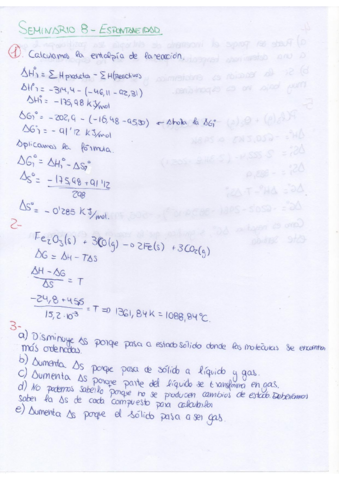 SEMINARIO 8 - ESPONTANEIDAD
1 Calculamos la entalpía de la reacción.
ΔHr° = Σ Hproducto - Σ Hreactivos
ΔHr° = -314,4 - (-46,11 - 92,31)
ΔHr° = -175,98 KJ/mol
ΔGr° = -202,9 - (-16,48 - 95,30) ←
ΔGr° = -91'12 KJ/mol
Aplicamos la fórmula.
ΔG° = ΔH° -
ΔS° = -175,98 + 91'12
298
ΔS° = -0'285 KJ/mol.
2-
Fe2O3(s) + 3CO(g) → 2Fe(s) + 3CO2(g)
ΔG = ΔH - TΔS
ΔH - ΔG = T
ΔS
-24,8 + = T ⇒ 1361,84K = 1088,84°C.
15,2 · 10-3
3-
a) Disminuye ΔS porque pasa a estado sólido donde las moléculas se encuentran
más ordenadas
b) Aumenta ΔS porque pasa de sólido a líquido y gas.
c) Aumenta ΔS porque parte del líquido se transforma en gas.
d) No podemos saberlo porque no se producen cambios de estado. Deberíamos
saber la ΔS de cada compuesto para calcularlos
e) Aumenta ΔS porque el sólido pasa a ser gas.